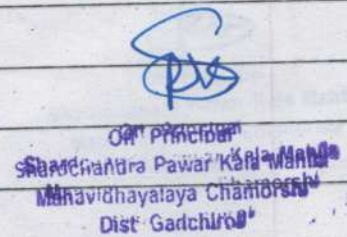 Off Principal
Sharadchandra Pawar Kala Mahila
Mahavidhayalaya Chamorshi
Dist Gadchiroli